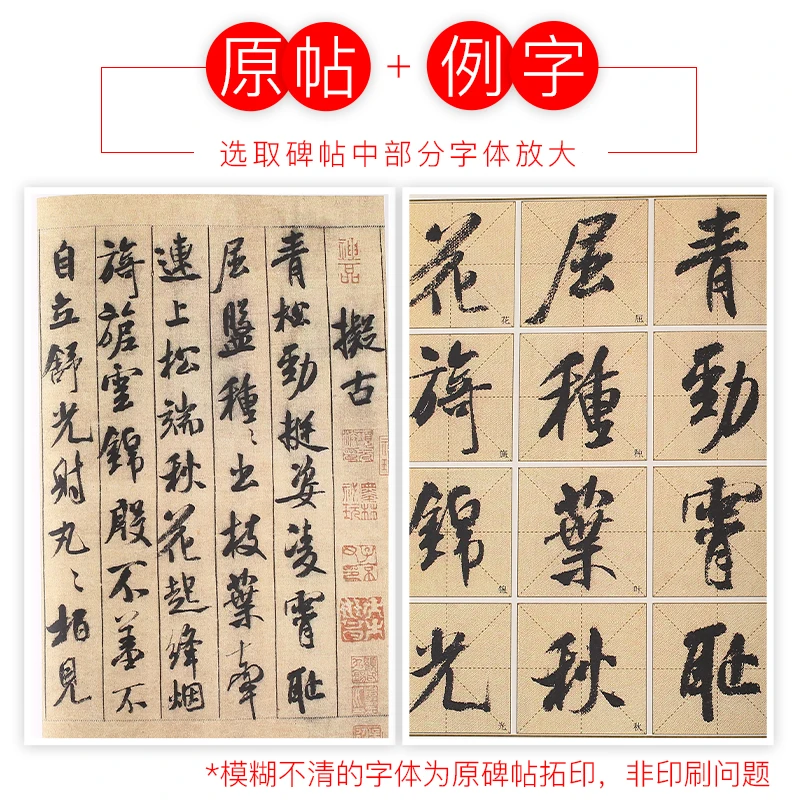 原帖+例字
选取碑帖中部分字体放大
擬古
青松勁挺姿凌霄耻
屈盤種〻出枝葉牽
連上松端秋花起絳烟
旖旎雲錦殷不羞不
自立舒光射丸〻柏見
青
勁
霄
耻
屈
屈
種
种
葉
叶
秋
秋
花
花
旖
旖
錦
锦
光
光
*模糊不清的字体为原碑帖拓印，非印刷问题